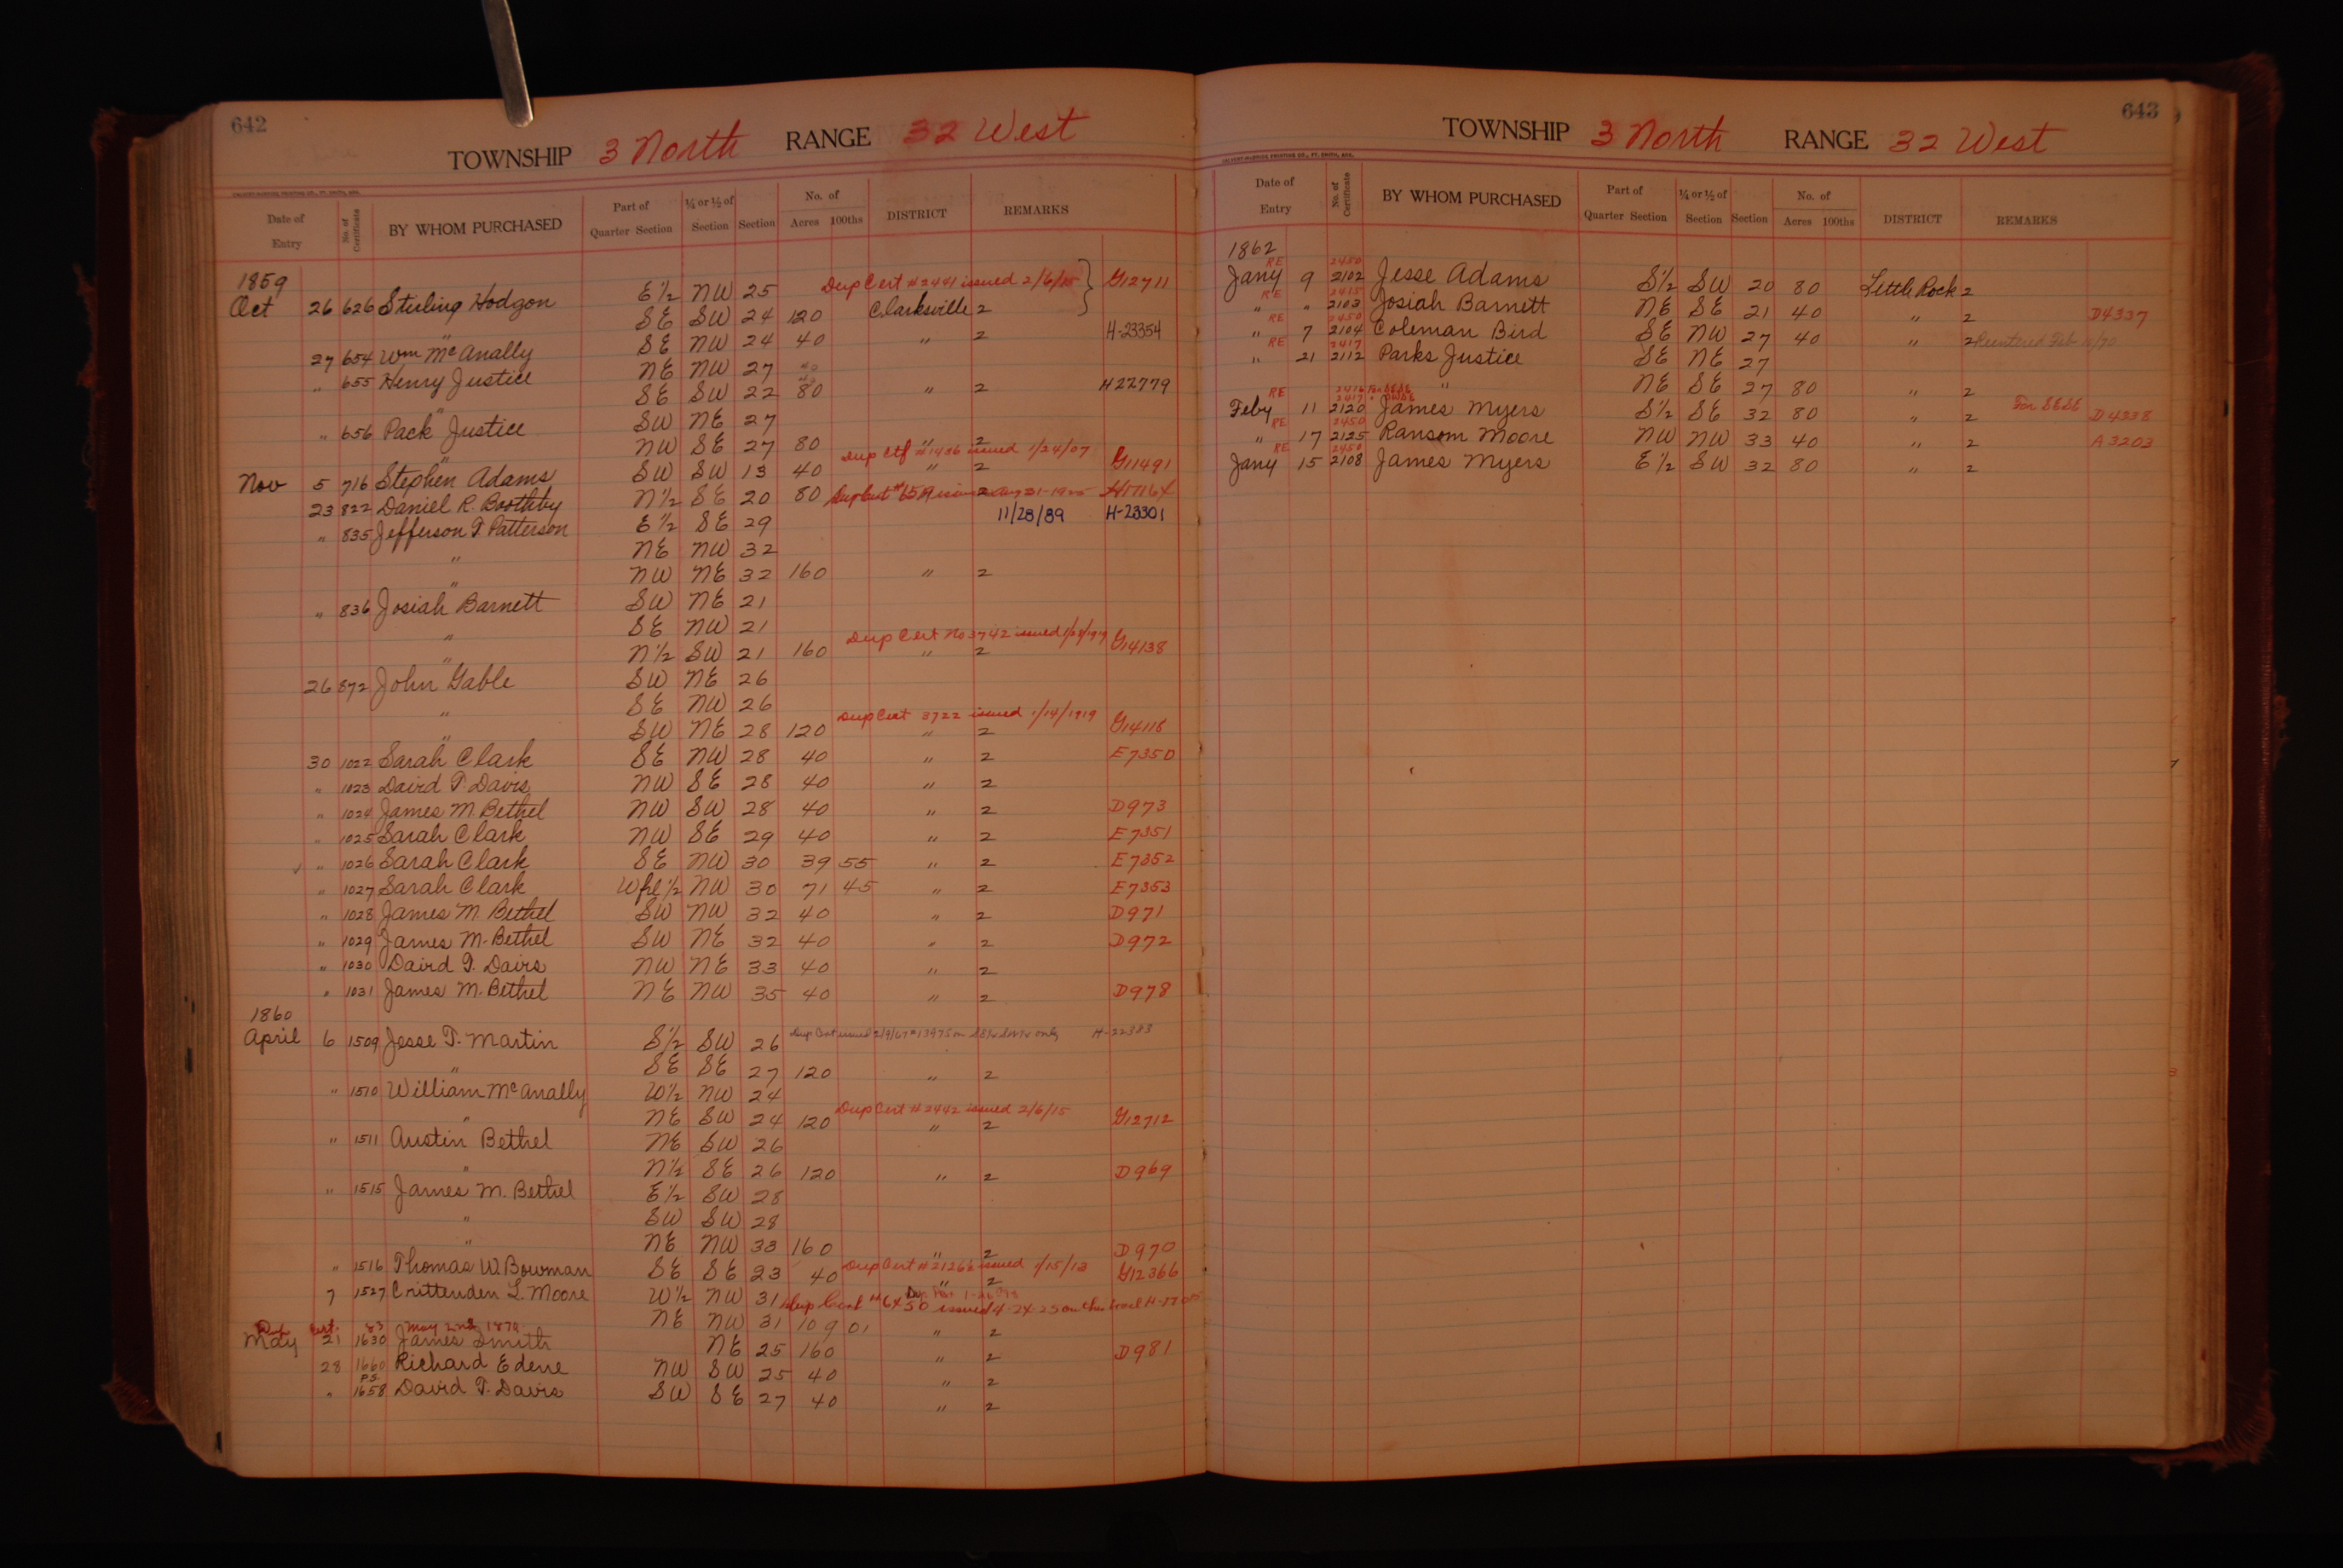 642
TOWNSHIP 3 North RANGE 32 West
CALVERT-McBRIDE PRINTING CO., FT. SMITH, ARK.
Date of Entry No. of Certificate BY WHOM PURCHASED Part of Quarter Section ¼ or ½ of Section Section No. of Acres 100ths DISTRICT REMARKS
1859
Dup Cert #2441 issued 2/6/15
Oct 26 626 Stirling Hodgon E½ NW 25 G12711
" SE SW 24 120 Clarksville 2
27 654 Wm McAnally SE NW 24 40 " 2 H-23354
" 655 Henry Justice NE NW 27 40
" SE SW 22 80 " 2 H22779
" 656 Pack Justice SW NE 27
" NW SE 27 80 " 2
Dup Ctf #1486 issued 1/24/07
Nov 5 716 Stephen Adams SW SW 13 40 " 2 G11491
23 822 Daniel R. Boothby N½ SE 20 80 2
" 835 Jefferson T. Patterson E½ SE 29 11/28/89 H-23301
" NE NW 32
" NW NE 32 160 " 2
" 836 Josiah Barnett SW NE 21
" SE NW 21
Dup Cert No 3742 issued 1/28/1919
" N½ SW 21 160 " 2 G14138
26 872 John Gable SW NE 26
" SE NW 26
Dup Cert 3722 issued 1/14/1919
" SW NE 28 120 " 2 G14118
30 1022 Sarah Clark SE NW 28 40 " 2 E7350
" 1023 David T. Davis NW SE 28 40 " 2
" 1024 James M. Bethel NW SW 28 40 " 2 D973
" 1025 Sarah Clark NW SE 29 40 " 2 E7351
" 1026 Sarah Clark SE NW 30 39 55 " 2 E7352
" 1027 Sarah Clark W frl ½ NW 30 71 45 " 2 E7353
" 1028 James M. Bethel SW NW 32 40 " 2 D971
" 1029 James M. Bethel SW NE 32 40 " 2 D972
" 1030 David T. Davis NW NE 33 40 " 2
" 1031 James M. Bethel NE NW 35 40 " 2 D978
1860
April 6 1509 Jesse T. Martin S½ SW 26 Dup Cert issued 2/9/67 #13975 on SE¼ SW¼ only H-22383
" SE SE 27 120 " 2
" 1510 William McAnally W½ NW 24
Dup Cert #2442 issued 2/6/15
" NE SW 24 120 " 2 G12712
" 1511 Austin Bethel NE SW 26
" N½ SE 26 120 " 2 D969
" 1515 James M. Bethel E½ SW 28
" SW SW 28
" NE NW 33 160 " 2 D970
Dup Cert #21266 issued 1/15/13
" 1516 Thomas W. Bowman SE SE 23 40 " 2 G12366
7 1527 Crittenden L. Moore W½ NW 31 Dup Cert #6450 issued 4-24-23
NE NW 31 109 01 " 2
Dup Cert. 83 May 2nd 1879
May 21 1630 James Smith NE 25 160 " 2 D981
28 1660 Richard Edene NW SW 25 40 " 2
P.S.
" 1658 David T. Davis SW SE 27 40 " 2
643
TOWNSHIP 3 North RANGE 32 West
CALVERT-McBRIDE PRINTING CO., FT. SMITH, ARK.
Date of Entry No. of Certificate BY WHOM PURCHASED Part of Quarter Section ¼ or ½ of Section Section No. of Acres 100ths DISTRICT REMARKS
1862
RE 2450
Jany 9 2102 Jesse Adams S½ SW 20 80 Little Rock 2
RE 2415
" " 2103 Josiah Barnett NE SE 21 40 " 2 D4337
RE 2450
" 7 2104 Coleman Bird SE NW 27 40 " 2 Reentered Feb
RE 2417
" 21 2112 Parks Justice SE NE 27
" NE SE 27 80 " 2
RE 2416 For SESE
2417
Feby 11 2120 James Myers S½ SE 32 80 " 2 For SESE D4338
RE 2450
" 17 2125 Ransom Moore NW NW 33 40 " 2 A3203
RE 2450
Jany 15 2108 James Myers E½ SW 32 80 " 2